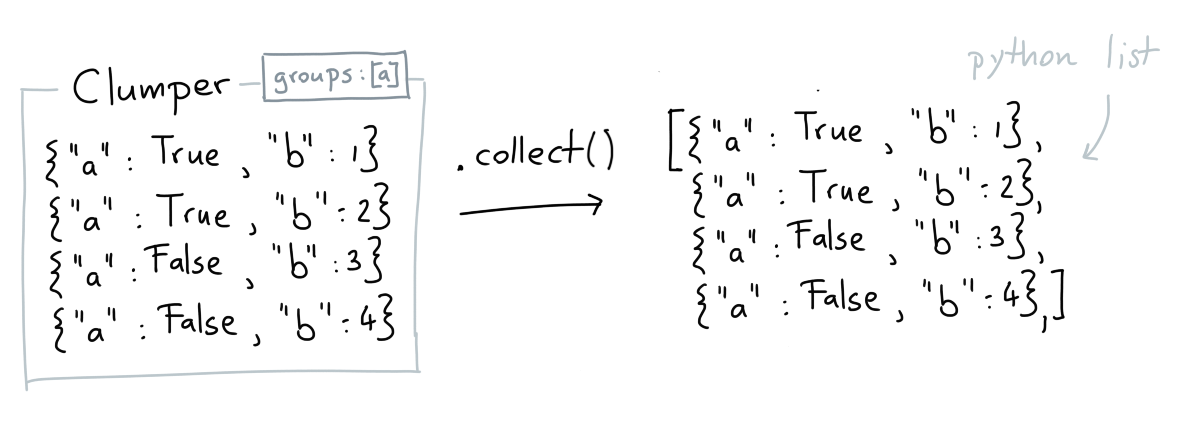 Clumper
groups:[a]
{"a" : True , "b" : 1}
{"a" : True , "b" : 2}
{"a" : False , "b" : 3}
{"a" : False , "b" : 4}
.collect()
python list
[{"a" : True , "b" : 1},
{"a" : True , "b" : 2},
{"a" : False , "b" : 3},
{"a" : False , "b" : 4},]